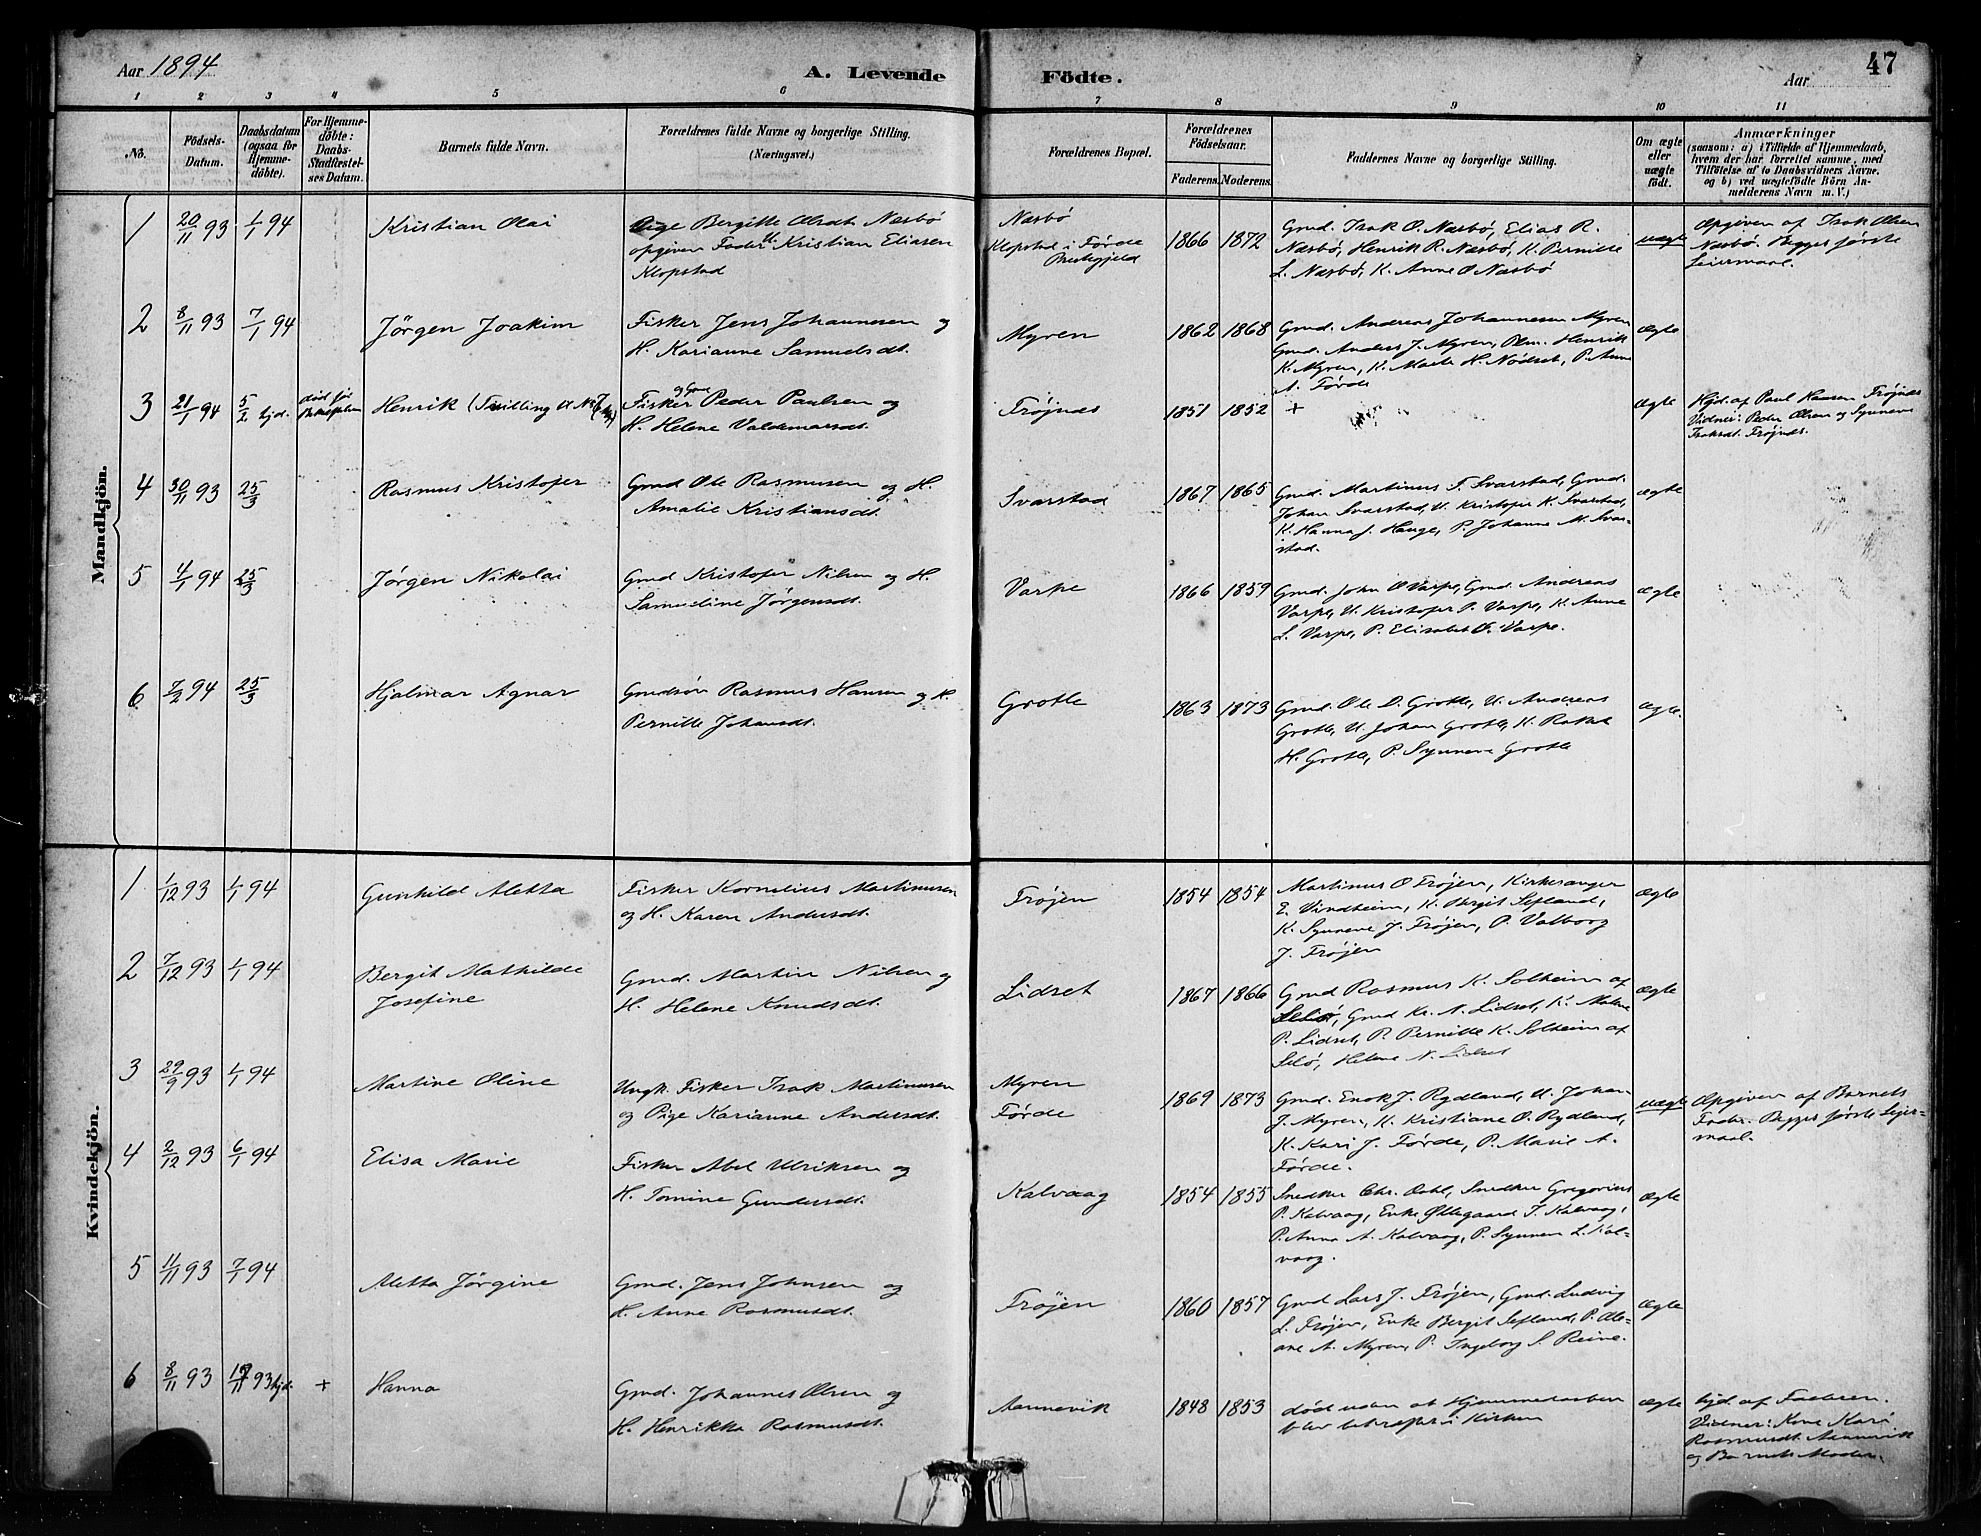 Aar 1894
A. Levende Födte.
Aar
47
1 2 3 4 5 6 7 8 9 10 11
No.
Födsels-
Datum.
Daabsdatum
(ogsaa for
Hjemme-
döbte).
For Hjemme-
döbte:
Daabs-
Stadfæstel-
ses Datum.
Barnets fulde Navn.
Forældrenes fulde Navne og borgerlige Stilling.
(Næringsvei.)
Forældrenes Bopæl.
Forældrenes
Födselsaar.
Faderens. Moderens.
Faddernes Navne og borgerlige Stilling.
Om ægte
eller
uægte
födt.
Anmærkninger
(saasom: a) i Tilfælde af Hjemmedaab,
hvem der har forrettet samme, med
Tilföielse af to Daabsvidners Navne,
og b) ved uægtefödte Börn An-
melderens Navn m. V.)
Mandkjön.
1 20/11 93 1/1 94 Kristian Olai
Pige Bergitte Næsbö
opgiven Fader Kristian Eliasen
Klopstad
Næsbö
Klopstad i Førde
1866 1872
Gmd. Isak O. Næsbö, Elias R.
Næsbö, Henrik R. Næsbö, K. Pernille
L. Næsbö, K. Anne O Næsbö
uægte
Opgiven af Isak Olsen
Næsbö. Begges første
Leiermaal.
2 8/11 93 7/1 94 Jörgen Joakim
Fisker Jens Johannesen og
H. Karianne Samuelsdt.
Myren
1862 1868
Gmd. Andreas Johannesen Myren
Gmd. Anders J. Myren, Henrik
K. Myren, K. H. Nödset, P. Anne
A. Førde
ægte
3 21/1 94 5/2 hjd. död før
Henrik (Tvilling
og Gmd
Fisker Peder Paulsen og
H. Helene Valdemarsdt.
Frøjnes
1851 1852
+
ægte
Hjd. af Paul Hansen Frøjnes
Vidner: Peder Olsen og Synneve
Isaksdt. Frøjnes.
4 30/11 93 25/3 Rasmus Kristofer
Gmd Ole Rasmusen og H.
Amalie Kristiansdt.
Svarstad
1867 1865
Gmd. Martinus F. Svarstad, Gmd.
Johan Svarstad, U. Kristofer K. Svarstad,
K. Hanna J. Hauge, P. Johanne M. Svar-
stad.
ægte
5 4/1 94 25/3 Jörgen Nikolai
Gmd Kristofer Nilsen og H.
Samueline Jørgensdt.
Varpe
1866 1859
Gmd. John O Varpe, Gmd. Andreas
Varpe, U. Kristofer P. Varpe, K. Anne
L. Varpe, P. Elisabet O. Varpe.
ægte
6 7/2 94 25/3 Hjalmar Agnar
Gmdsön Rasmus Hansen og H.
Pernille Johansdt.
Grotle
1863 1873
Gmd. Ole D. Grotle, U. Andreas
Grotle, U. Johan Grotle, K. Rakel
H. Grotle, P. Synneve Grotle
ægte.
Kvindekjön.
1 1/12 93 1/1 94 Gunhild Aletta
Fisker Kornelius Martinusen
og H. Karen Andersdt.
Frøjen
1854 1854
Martinus O Frøjen, Kirkesanger
E. Vindheim, K. Bergit Sefland,
K. Synneve J. Frøjen, P. Valborg
J. Frøjen
ægte
2 7/12 93 1/1 94 Bergit Mathilde
Josefine
Gmd. Martin Nilsen og
H. Helene Knudsdt.
Lidset
1867 1866
Gmd Rasmus K. Solheim af
Selö, Gmd Kr. N. Lidset, K. Malene
P. Lidset, P. Pernille K. Solheim af
Selö, Helene N. Lidset
ægte
3 29/9 93 1/1 94 Martine Oline
Ungk. Fisker Isak Martinusen
og Pige Karianne Andersdt.
Myren
Førde
1869 1873
Gmd. Enok J. Rydland, U. Johan
J. Myren, K. Kristiane O. Rydland,
K. Kari J. Førde, P. Marie A.
Førde.
uægte
Opgiven af Barnets
Fader. Begges første Leier-
maal.
4 2/12 93 6/1 94 Elisa Marie
Fisker Abel Ulriksen og
H. Tomine Gundersdt.
Kalvaag
1854 1855
Snedker Chr. Dahl, Snedker Gregorius
P. Kalvaag, Enke Øllegaard T. Kalvaag,
P. Anna A. Kalvaag, P. Synneve L. Kal-
vaag.
ægte
5 11/11 93 7/1 94 Aletta Jörgine
Gmd. Jens Johnsen og
H. Anne Rasmusdt.
Frøjen
1860 1857
Gmd Lars J. Frøjen, Gmd. Ludvig
L. Frøjen, Enke Bergit Sefland, P. Ole-
ane A. Myren, P. Ingeborg S. Reine.
ægte
6 8/11 93 93 hjd. + Hanna
Gmd. Johannes Olsen og
H. Henrikka Rasmusdt.
Aannevik
1848 1853
død uden at Hjemmedaaben
blev bekræftet i Kirken
ægte
hjd. af Faderen.
Vidner: Kone Kari
Rasmusdt. Aannevik
og Barnets Moder.